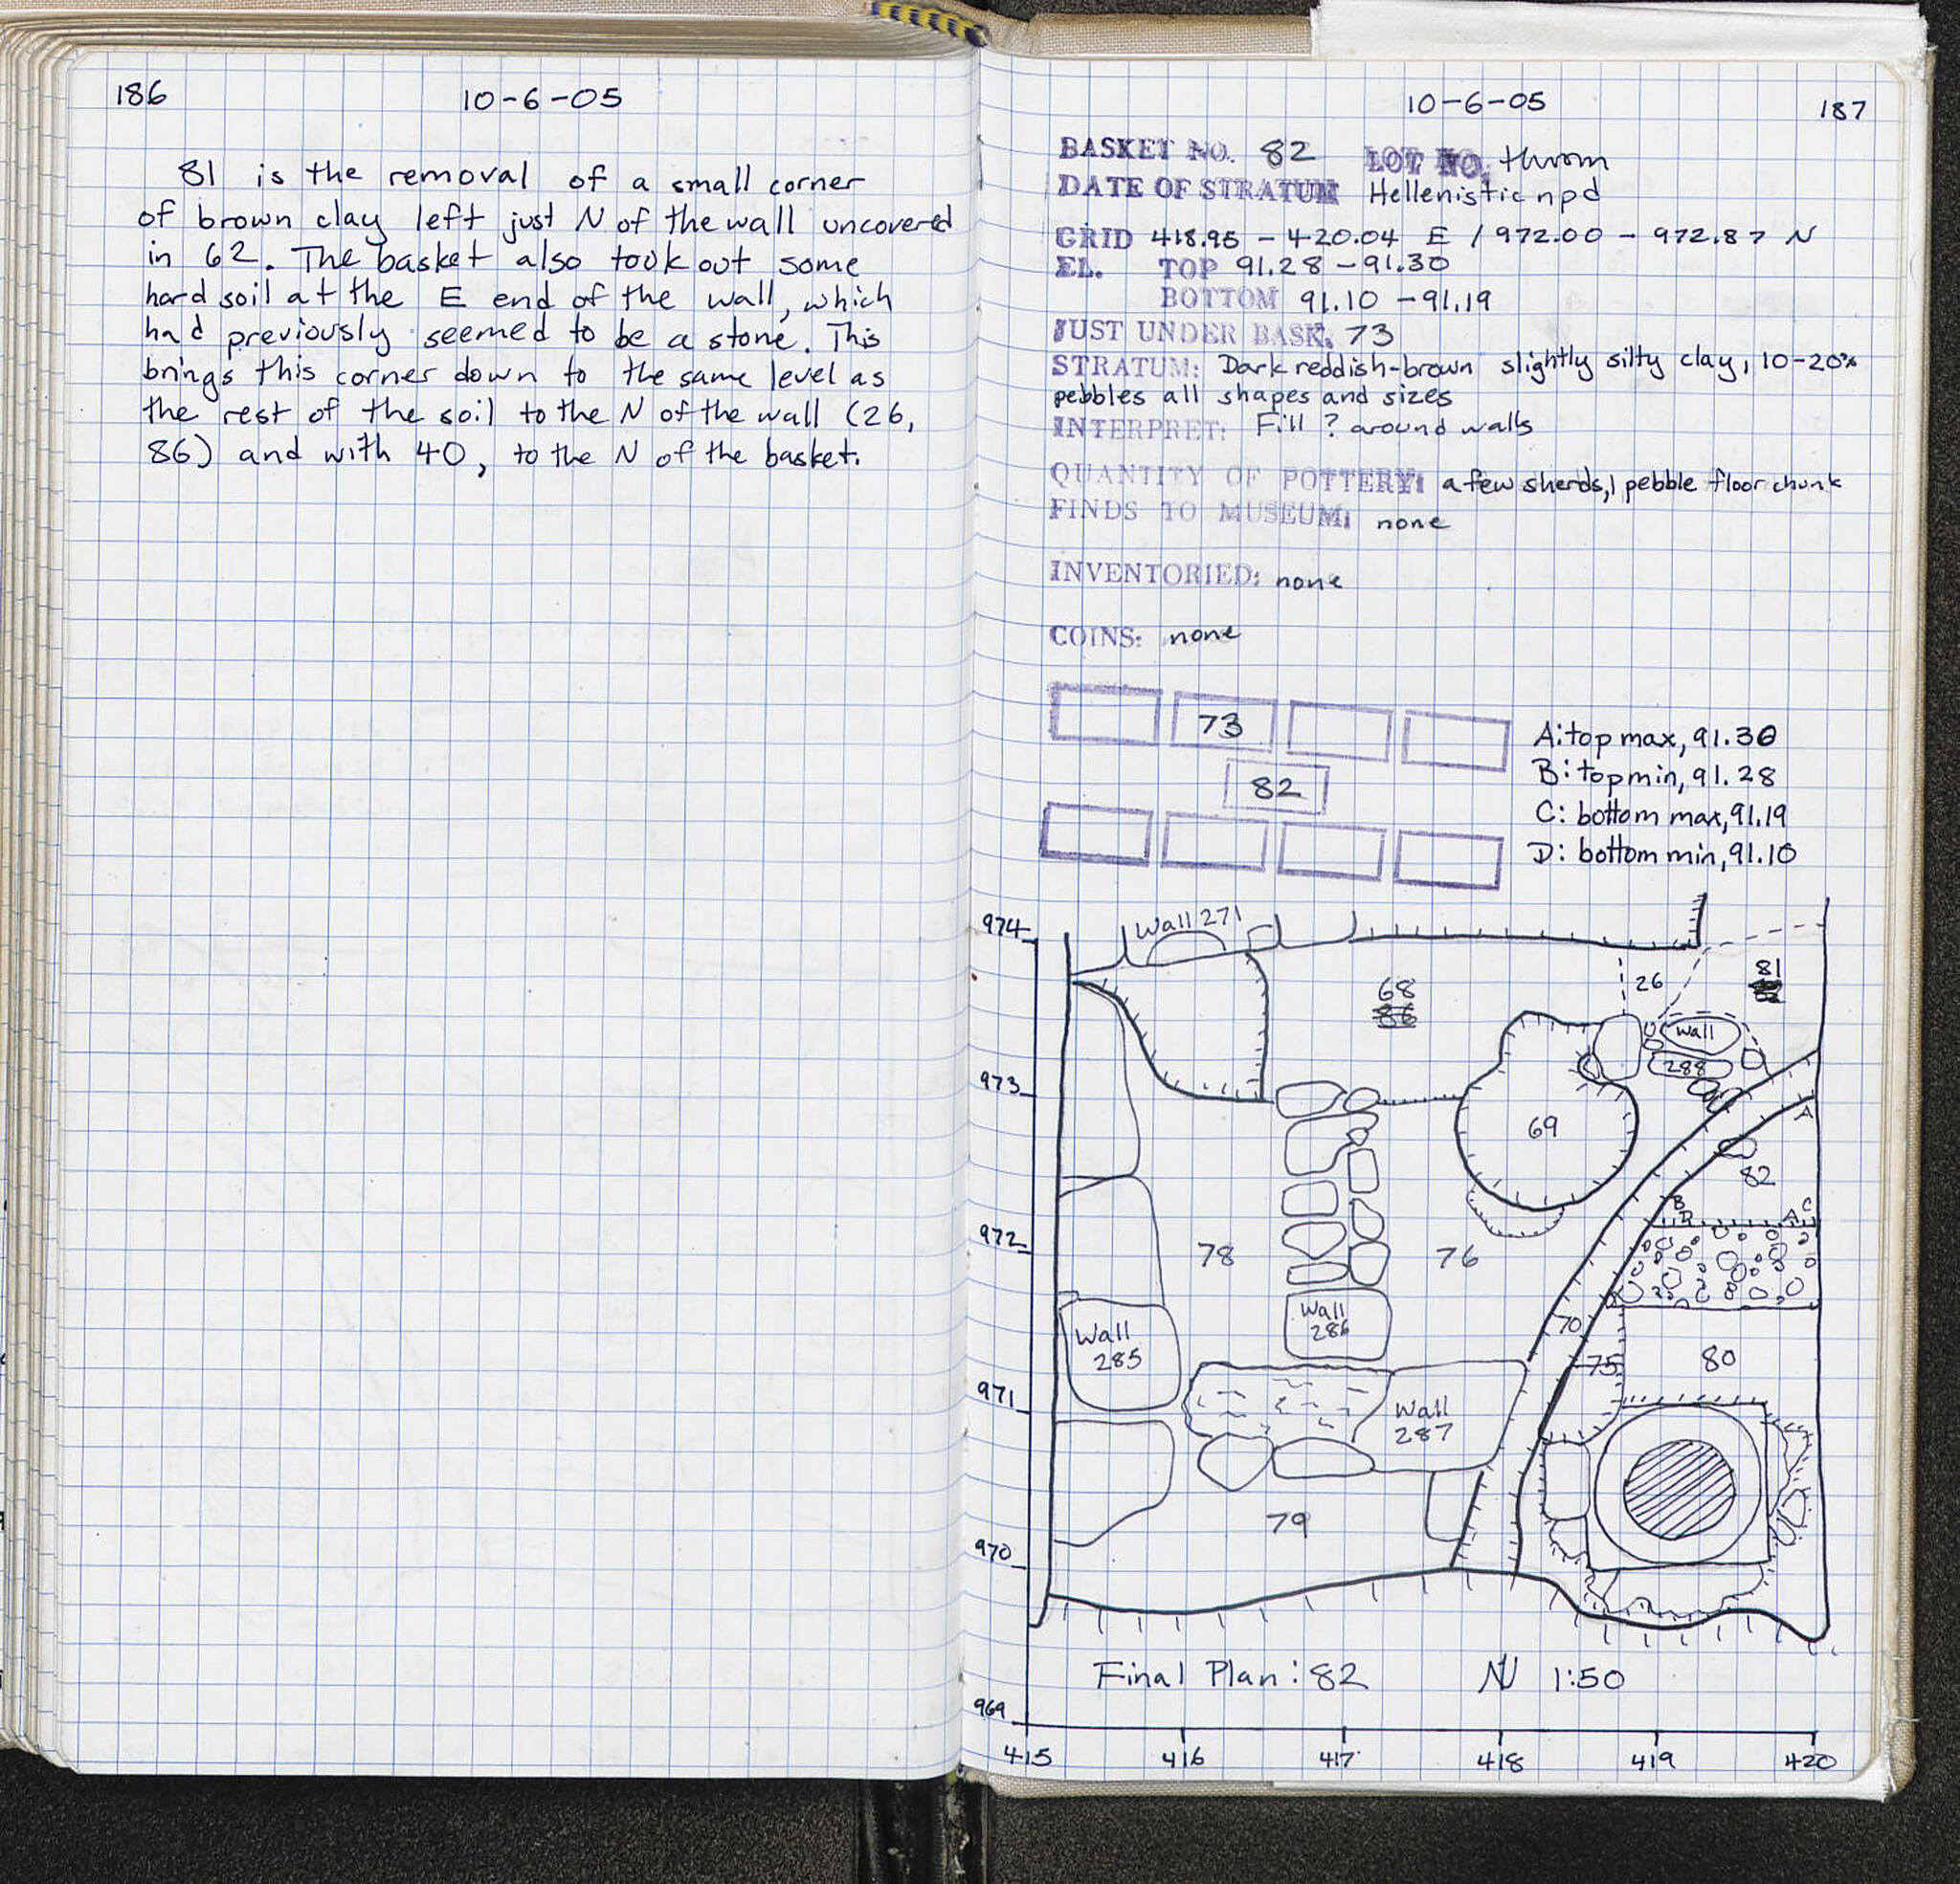 186
10-6-05
81 is the removal of a small corner
of brown clay left just N of the wall uncovered
in 62. The basket also took out some
hard soil at the E end of the wall, which
had previously seemed to be a stone. This
brings this corner down to the same level as
the rest of the soil to the N of the wall (26,
86) and with 40, to the N of the basket.
10-6-05
187
BASKET NO. 82 LOT NO. thrown
DATE OF STRATUM Hellenistic npd
GRID 418.95 - 420.04 E / 972.00 - 972.87 N
EL. TOP 91.28 - 91.30
BOTTOM 91.10 - 91.19
JUST UNDER BASK. 73
STRATUM: Dark reddish-brown slightly silty clay, 10-20%
pebbles all shapes and sizes
INTERPRET: Fill? around walls
QUANTITY OF POTTERY: a few sherds, 1 pebble floor chunk
FINDS TO MUSEUM: none
INVENTORIED: none
COINS: none
73
82
A: top max, 91.30
B: top min, 91.28
C: bottom max, 91.19
D: bottom min, 91.10
974
Wall 271
68
86
26
81
Wall
288
973
69
A
82
B
D
A
C
972
78
76
Wall
286
Wall
285
70
75
80
971
Wall
287
79
970
Final Plan: 82 N 1:50
969
415 416 417 418 419 420